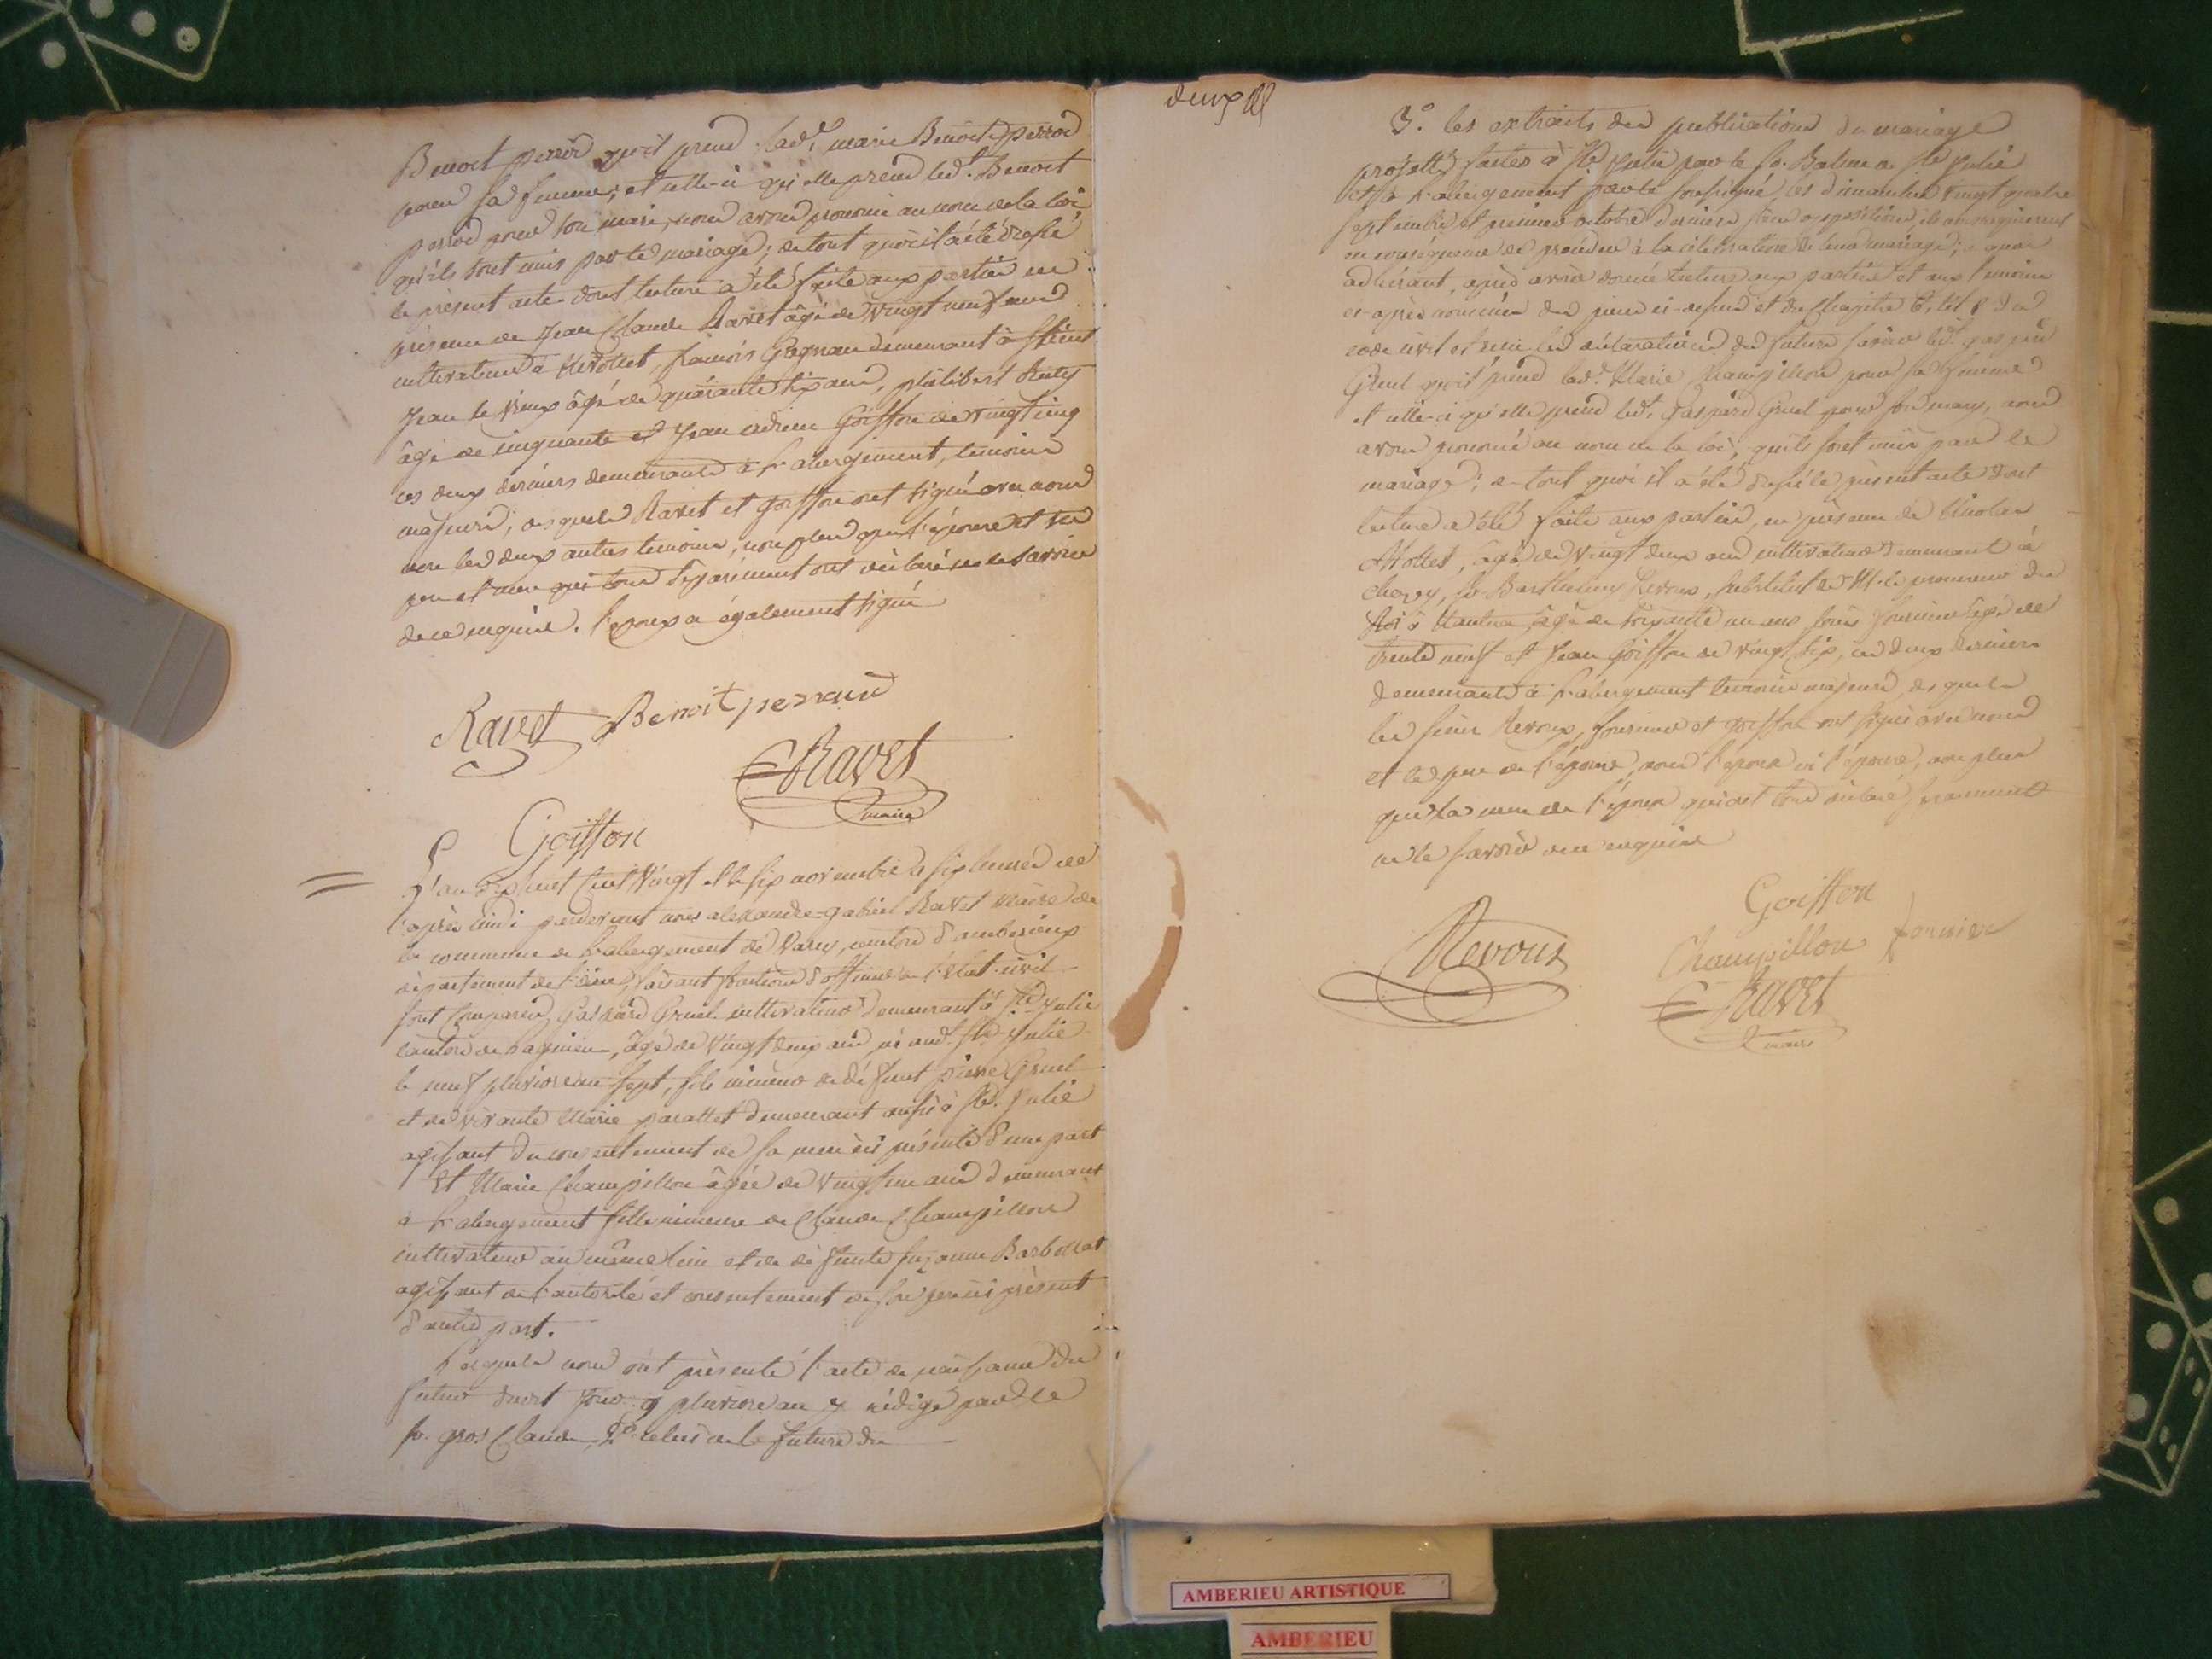 Benoit perrod qu'il prend lad.e marie Benoite perrod
pour sa femme, et celle-ci qu'elle prend led. Benoit
perrod pour son mari, nous avons prononcé au nom de la loi
qu'ils sont unis par le mariage; de tout quoi il a été dressé
le présent acte dont lecture a été faite aux parties en
présence de Jean Claude Ravet âgé de vingt neuf ans
cultivateur à françois demeurant à Saint
Jean le vieux âgé de quarante six ans, philibert
âgé de cinquante et Jean Goiffon de vingt cinq
ces deux derniers demeurants à l'abergement, temoins
majeurs, desquels Ravet et Goiffon ont signé avec nous
non les deux autres temoins, non plus que l'épouse et ses
pere et mere qui tous séparément ont déclaré ne le savoir
de ce enquis. l'epoux a également signé
Ravet Benoit perraud
Ravet
maire
Goiffon
L'an dix huit cent vingt et le six novembre à six heures de
l'après midi pardevant nous alexandre-gabriel Ravet maire de
la commune de l'abergement de Varey, canton d'amberieux
département de l'ain, faisant fonctions d'officier de l'état-civil
sont comparus Gaspard Gruel cultivateur demeurant à Ste Julie
canton de Lagnieu, âgé de vingt deux ans né aud. Ste Julie
le neuf pluviose an sept, fils mineur de défunt pierre Gruel
et de vivante Marie demeurant aussi à Ste. Julie
agissant du consentement de sa mere ici présente d'une part
Et Marie Champillon âgée de vingt un ans demeurant
à l'abergement fille mineure de Claude Champillon
cultivateur au même lieu et de défunte suzanne Barbollat
agissant de l'autorité et consentement de son pere ici présent
d'autre part.
Lesquels nous ont présenté l'acte de naissance du
futur dud. jour 9 pluviose an 7 rédigé par le
sr. gros Claude, 2° celui de la future du
deux
3.° les extraits des publications du mariage
projetté faites à Ste Julie par le sr. Balme a Ste Julie
et à l'abergement par le soussigné les dimanches vingt quatre
septembre et premier octobre derniers sans oppositions, ils ont requis
en conséquence de proceder à la célébration de leur mariage; à quoi
adhérant, après avoir donné lecture aux parties et aux temoins
ci-après nommés des pieces ci-dessus et du chapitre 6, tit. 5 du
code civil et reçu les déclarations des futurs savoir led. gaspard
Gruel qu'il prend lad.e Marie Champillon pour sa femme
et celle-ci qu'elle prend led. Gaspard Gruel pour son mary, nous
avons prononcé au nom de la loi, qu'ils sont unis par le
mariage; de tout quoi il a été dressé le présent acte dont
lecture a été faite aux parties, en présence de Nicolas
Mollet, âgé de vingt deux ans cultivateur demeurant à
sr Barthelemy Revoux, substitut de M. le procureur du
Roi à Nantua âgé de soixante un ans louis fournier âgé de
trente neuf et Jean Goiffon de vingt six, ces deux derniers
demeurants à l'abergement temoins majeurs, desquels
les sieurs Revoux, fournier et goiffon ont signé avec nous
et le pere de l'épouse, non l'epoux ni l'épouse, non plus
que la mere de l'époux qui ont tous déclaré séparement
ne le savoir de ce enquis
Goiffon
Revoux Champillon fournier
Ravet
maire
AMBERIEU ARTISTIQUE
AMBERIEU